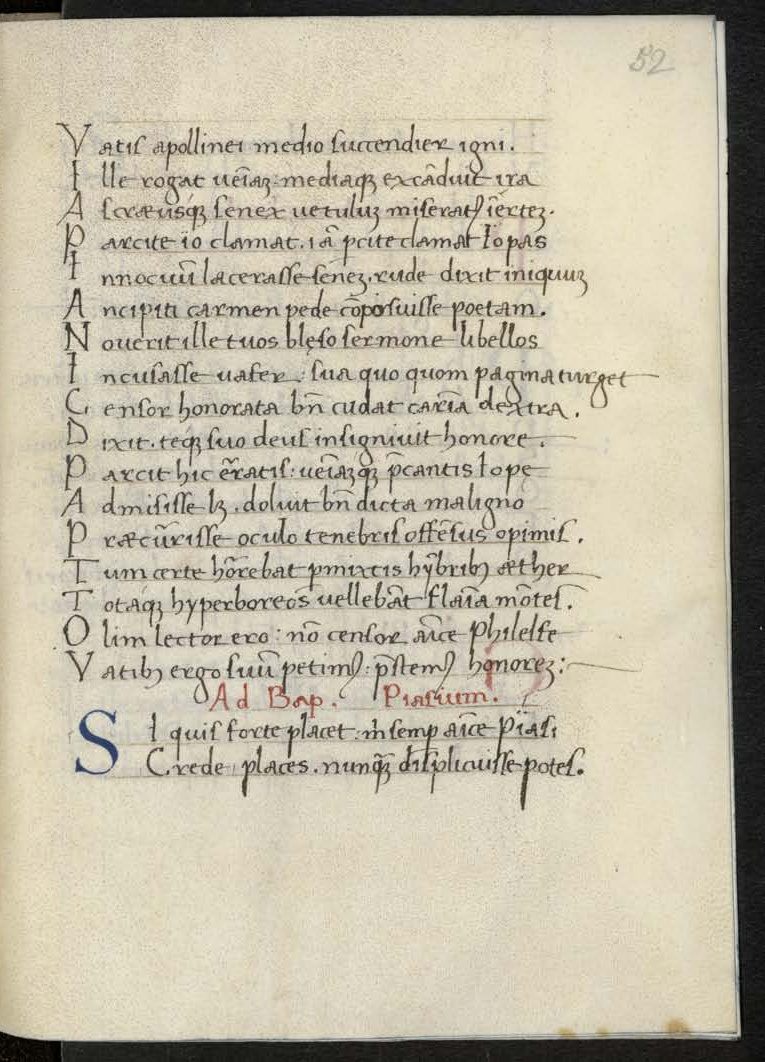 52
Vatis apollinei medio succendier igni.
Ille rogat uēiaȝ: mediaqȝ excāduit ira
Ascræusqȝ senex uetuluȝ miserat⁊ īerteȝ.
Parcite io clamat. iā ꝑcite clamat Iopas
Innocuū lacerasse seneȝ. rude dixit iniquuȝ
Ancipiti carmen pede cōposuisse poetam.
Nouerit ille tuos blęso sermone libellos
Incusasse uafer: sua quo quom pagina turget
Censor honorata bn̄ cudat carīa dextra.
Dixit. teqȝ suo deus insigniuit honore.
Parcit hic er̄atis: uēiaȝqȝ p̄cantis Iopę
Admisisse lȝ. doluit bn̄ dicta maligno
Præcur̄isse oculo tenebris offēsus opimis.
Tum certe hor̄ebat ꝑmixtis hȳbribȝ æther
Totaqȝ hyperboreos uellebāt flaīa mōtes.
Olim lector ero: nō censor aīce Philelfe
Vatibȝ ergo suū petim⁊: p̄stem⁊ honoreȝ:
Ad Bap. Piasium.
SI quis forte placet: m̄ semp aīce Piasi
Crede places. nunqȝ̄ displicuisse potes.